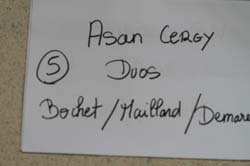 Asan CERGY
5 Duos
Bochet / Maillard / Demare